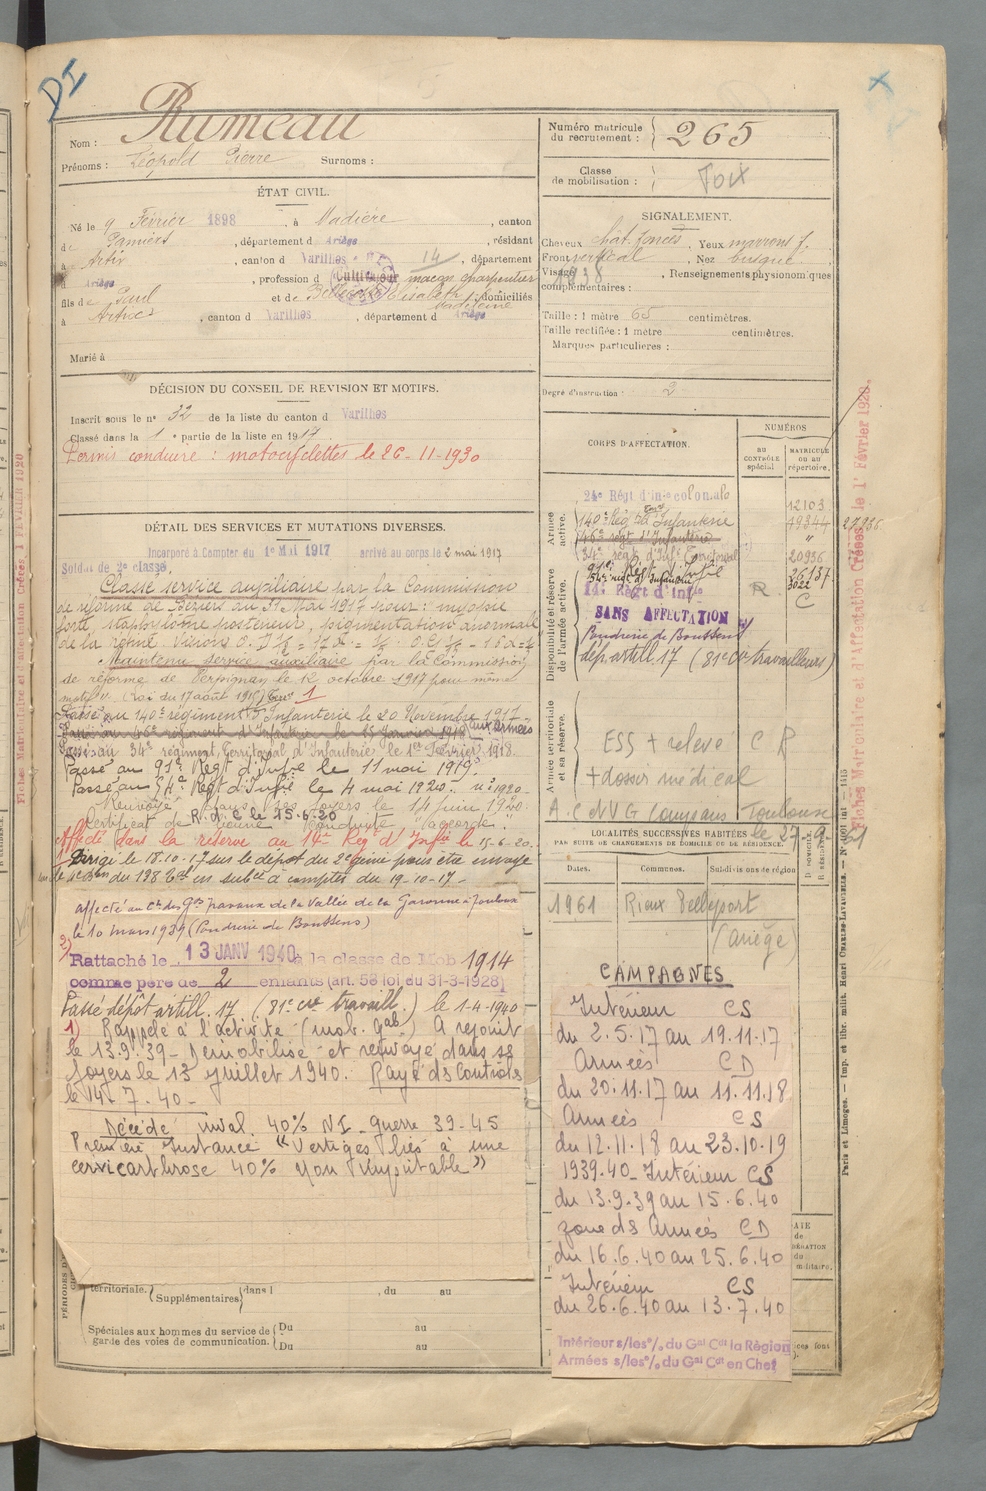 DI
Nom : Rumeau
Prénoms : Léopold Pierre Surnoms :
ÉTAT CIVIL.
Né le 9 Février 1898, à Madière, canton
de Pamiers, département d Ariège, résidant
à Artix, canton d Varilhes, département
d Ariège, profession d Cultivateur maçon charpentier
fils de Paul et de Elisabeth Madeleine, domiciliés
à , canton d Varilhes, département d Ariège
14
Marié à
DÉCISION DU CONSEIL DE REVISION ET MOTIFS.
Inscrit sous le n° 32 de la liste du canton d Varilhes
Classé dans la 1e partie de la liste en 1917
Permis conduire : motocyclettes le 26-11-1930
DÉTAIL DES SERVICES ET MUTATIONS DIVERSES.
Incorporé à Compter du 1er Mai 1917 arrivé au corps le 2 mai 1917
Soldat de 2e classe,
Classé service auxiliaire par la Commission
de réforme de Béziers du 31 Mai 1917 pour : myopie
forte, staphylôme postérieur, pigmentation anormale
de la rétine. Vision O.D
Maintenu service auxiliaire par la Commission
de réforme de Perpignan le 12 octobre 1917 pour même
motif. (Loi du 17 août 1915) 1
Passé au 140e régiment d'Infanterie le 20 Novembre 1917
Passé au 46e régiment d'Infanterie le 15 Janvier 1918 aux armées
Passé au 34e régiment Territorial d'Infanterie le 1er Février 1918
Passé au 91e Régt d'Infie le 11 mai 1919.
Passé au 54e Régt d'Infie le 4 mai 1920.
Renvoyé dans ses foyers le 14 juin 1920
R. d. C le 15-6-20
Certificat de bonne conduite "accordé".
Affecté dans la réserve au 14e Rég d'Infie le 15-6-20.
Dirigé le 18.10-17 sur le dépôt du 2e génie pour être envoyé
du 128 à compter du 19-10-17 -
affecté au Ch. des Gds travaux de la Vallée de la Garonne à Toulouse
le 10 mars 1939 (Poudrerie de Boussens)
2) Rattaché le 13 JANV 1940 à la classe de Mob 1914
comme père de 2 enfants (art. 58 loi du 31-3-1928)
Passé dépôt artill. 17 (81e Cie travaill.) le 1-4-1940
1) Rappelé à l'activité (mob. Gale) A rejoint
le 13.9.39 - Démobilisé et renvoyé dans ses
foyers le 13 Juillet 1940. Rayé ds Contrôles
le 14.7.40 -
Décédé inval. 40% NI - guerre 39-45
Première Instance "Vertiges liés à une
cervicarthrose 40% Non Imputable"
territoriale. Supplémentaires dans l , du au
Spéciales aux hommes du service de garde des voies de communication. Du au
Du au
Numéro matricule du recrutement : 265
Classe de mobilisation : Foix
SIGNALEMENT.
Cheveux chât. foncés, Yeux marrons f.
Front vertical, Nez busqué
Visage , Renseignements physionomiques
complémentaires :
1938
Taille : 1 mètre 65 centimètres.
Taille rectifiée : 1 mètre centimètres.
Marques particulières :
Degré d'instruction : 2
CORPS D'AFFECTATION.
NUMÉROS
AU CONTRÔLE spécial
MATRICULE OU AU répertoire.
Armée active.
24e Régt d'Infie coloniale 12103
140e Rég d'Infanterie 27936
46e régt d'Infanterie "
34e régt d'Infie Territorial 20936
91e Régt d'Infie 26137
54e régt d'Infanterie 3022
Disponibilité et réserve de l'armée active.
14e Régt d'Infie R C
SANS AFFECTATION
Poudrerie de Boussens
dép. artill. 17 (81e Cie travailleurs)
Armée territoriale et sa réserve.
ESS + relevé C R
+ dossier médical
A.C dVG Toulouse
LOCALITÉS SUCCESSIVES HABITÉES
PAR SUITE DE CHANGEMENTS DE DOMICILE OU DE RÉSIDENCE.
le 27-9-
Dates. Communes. Subdivisions de région
D. DOMICILE. R. RÉSIDENCE.
1961 Rieux Pelleport
(Ariège)
CAMPAGNES
Intérieur CS
du 2.5.17 au 19.11.17
Armées CD
du 20.11.17 au 11.11.18
Armées CS
du 12.11.18 au 23.10.19
1939.40 - Intérieur CS
du 13.9.39 au 15.6.40
zone ds Armées CD
du 16.6.40 au 25.6.40
Intérieur CS
du 26.6.40 au 13.7.40
Intérieur s/les % du Gal Cdt la Région
Armées s/les % du Gal Cdt en Chef
Fiches Matriculaire et d'Affectation Créées, le 1er Février 1920.
Fiches Matriculaire et d'affectation Crées, 1 FEVRIER 1920
Paris et Limoges. — Imp. et libr. milit. Henri CHARLES-LAVAUZELLE.